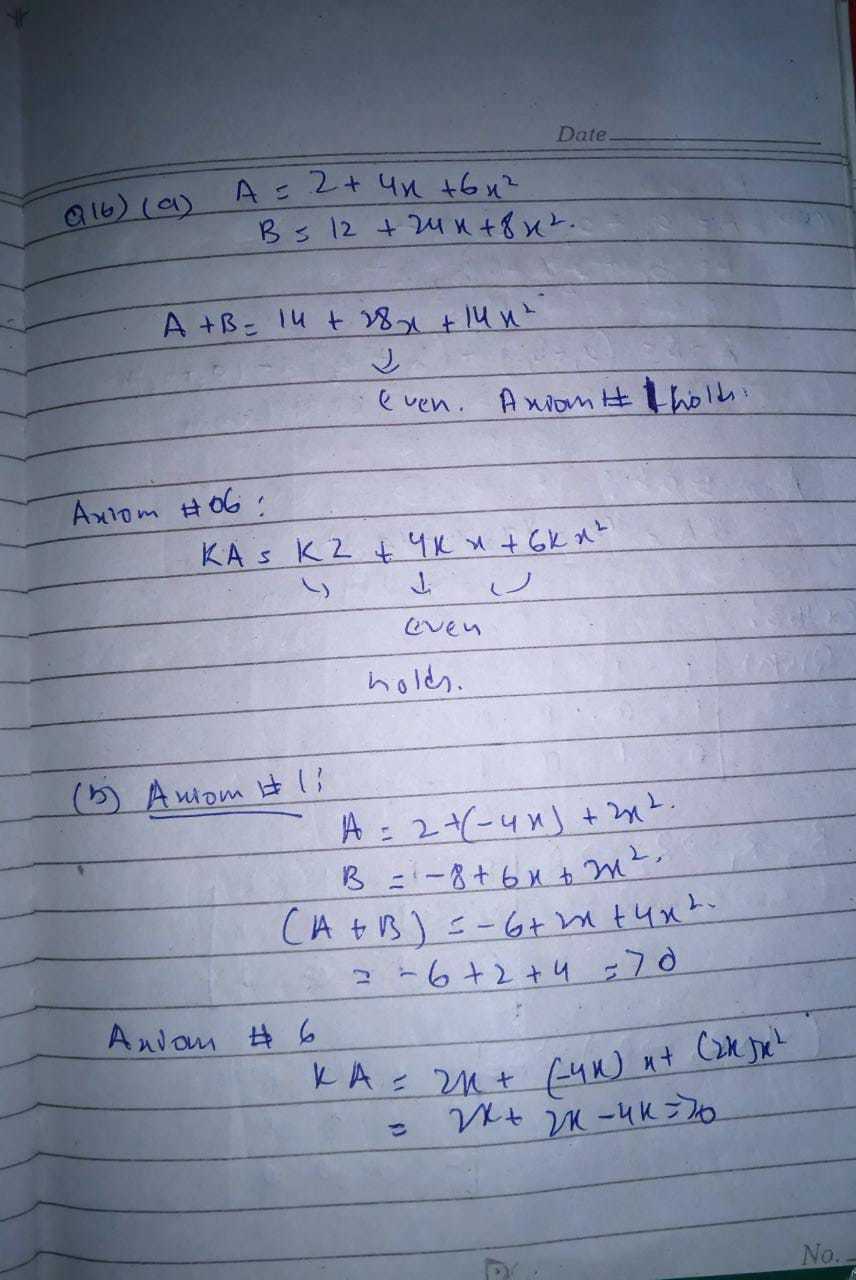 Date
Q16) (a) A = 2 + 4x + 6x²
B = 12 + 24x + 8x².
A + B = 14 + 28x + 14x²
↓
even. Axiom # 1 holds.
Axiom # 06 :
KA = K2 + 4Kx + 6Kx²
even
holds.
(b) Axiom # 1:
A = 2 + (-4x) + 2x².
B = -8 + 6x + 2x².
(A + B) = -6 + 2x + 4x².
= -6 + 2 + 4 => 0
Axiom # 6
KA = 2K + (-4K) x + (2K)x²
= 2K + 2K - 4K => 0
No.